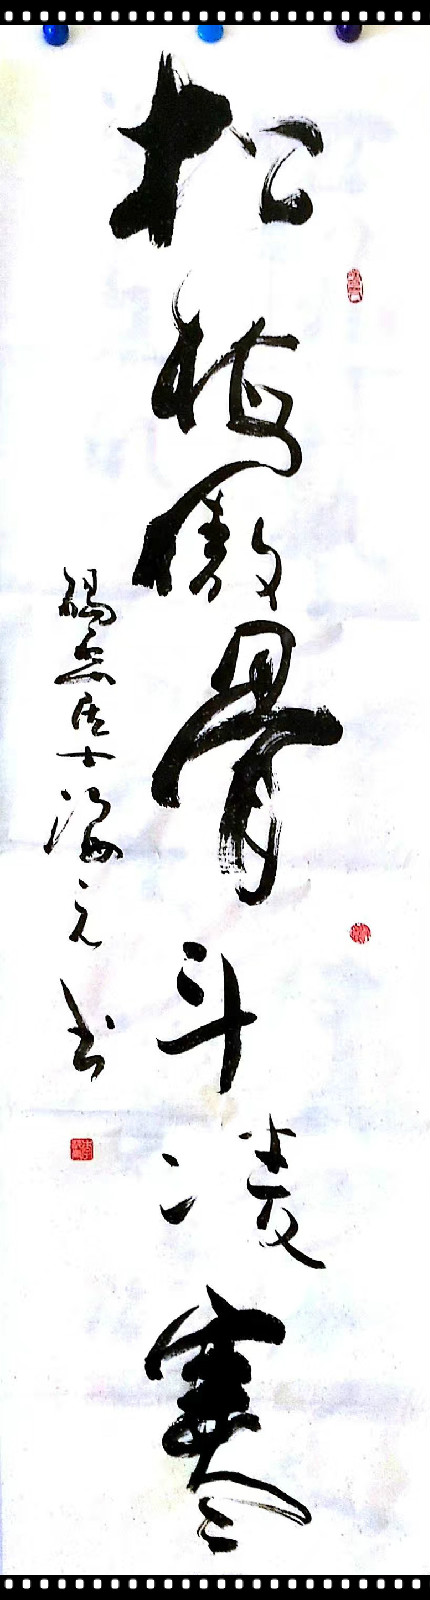 松梅傲骨斗凌寒
居士海元书